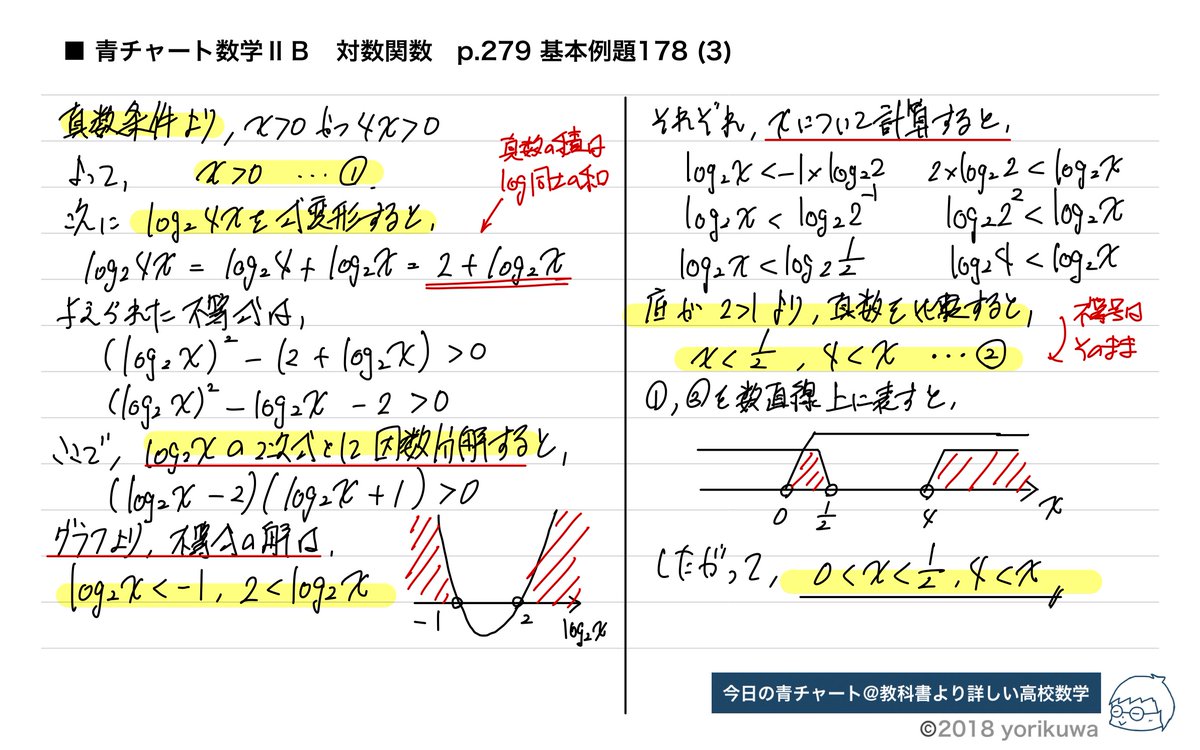 ■ 青チャート数学ⅡB 対数関数 p.279 基本例題178 (3)
真数条件より, x>0 かつ 4x>0
よって, x>0 … ①
真数の積は
log同士の和
次に log₂4x を式変形すると,
log₂4x = log₂4 + log₂x = 2 + log₂x
与えられた不等式は,
(log₂x)² - (2 + log₂x) > 0
(log₂x)² - log₂x - 2 > 0
ここで, log₂xの2次式として因数分解すると,
(log₂x - 2)(log₂x + 1) > 0
グラフより, 不等式の解は,
log₂x < -1, 2 < log₂x
-1 2 log₂x
それぞれ, xについて計算すると,
log₂x < -1×log₂2 2×log₂2 < log₂x
log₂x < log₂2⁻¹ log₂2² < log₂x
log₂x < log₂1/2 log₂4 < log₂x
底が 2>1より, 真数を比較すると,
不等号は
そのまま
x < 1/2, 4 < x … ②
①, ②を数直線上に表すと,
0 1/2 4 x
したがって, 0 < x < 1/2, 4 < x
今日の青チャート@教科書より詳しい高校数学
©2018 yorikuwa